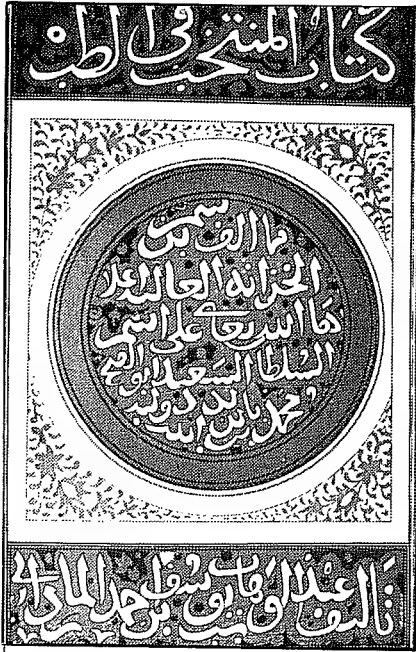 كتاب المنتخب في الطب
مما الف برسم
الخزانة العالية اعلا
ها الله تعالى على اسم
السلطان السعيد ابو الفتح
محمد
الله
تاليف عبد الوهاب بن يوسف بن احمد